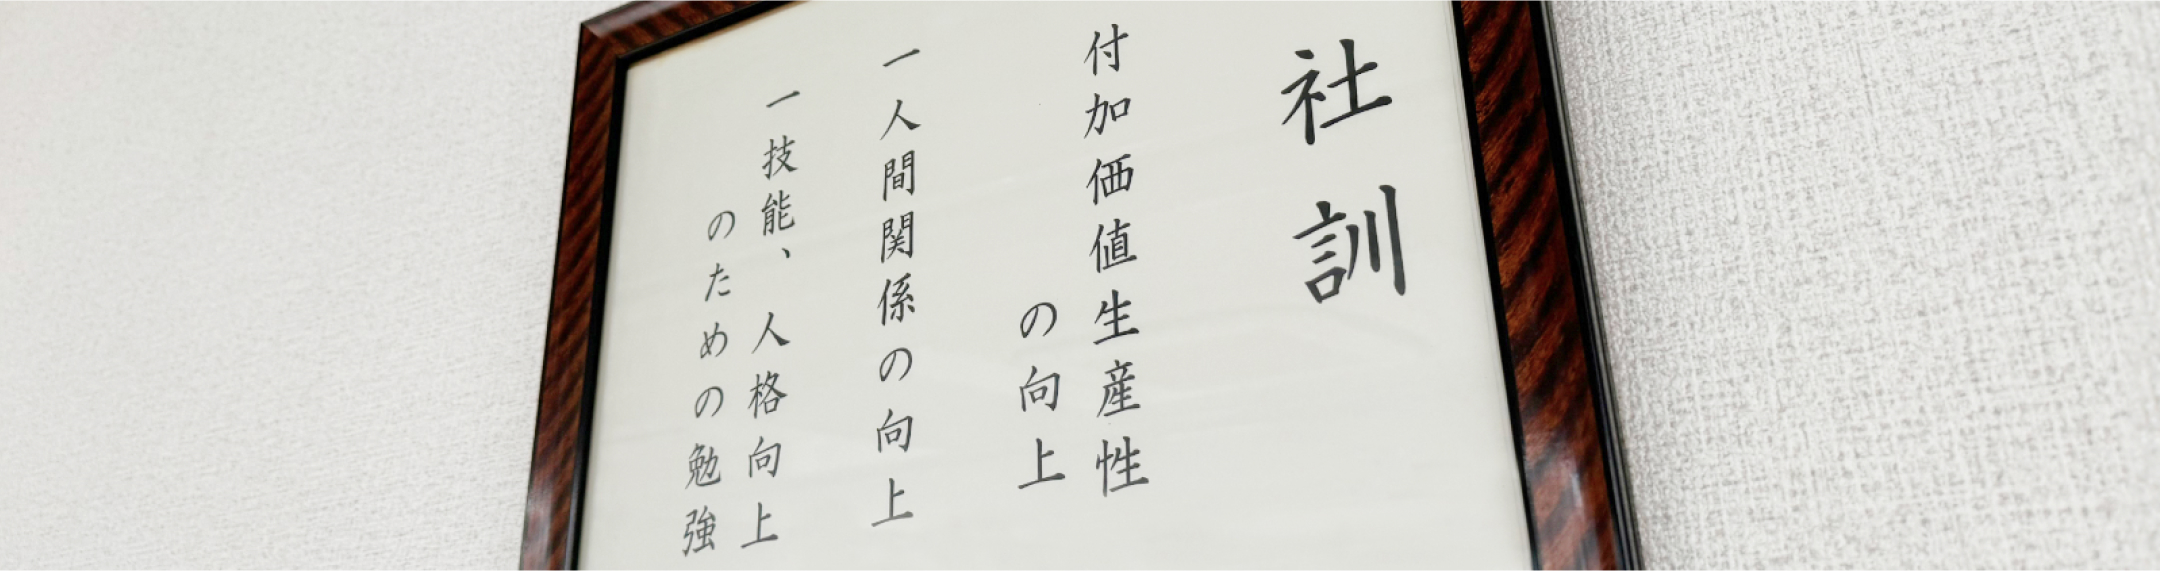 社訓
付加価値生産性
の向上
一人間関係の向上
一技能、人格向上
のための勉強